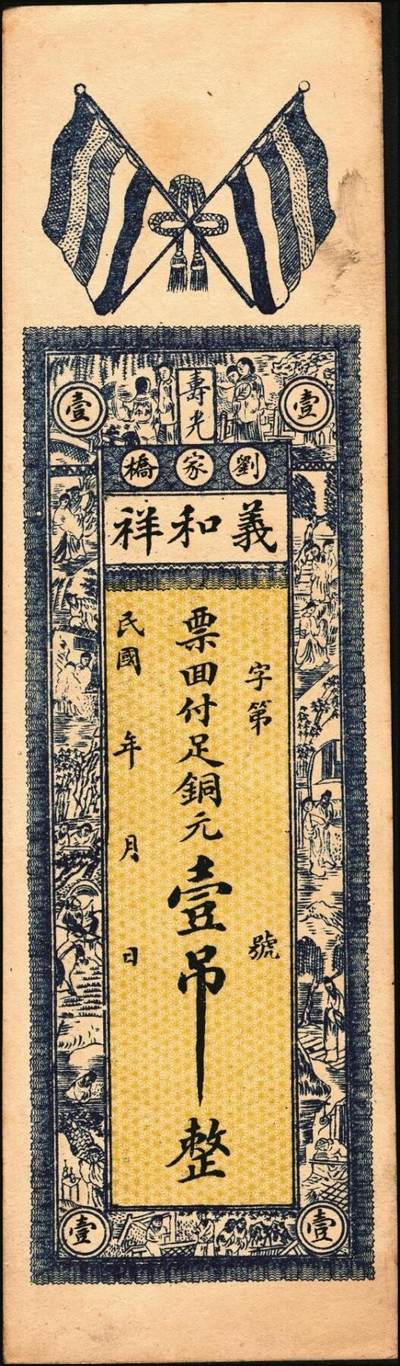 壹
壹
壽光
劉家橋
義和祥
字第 號
票回付足銅元壹吊整
民國 年 月 日
壹
壹